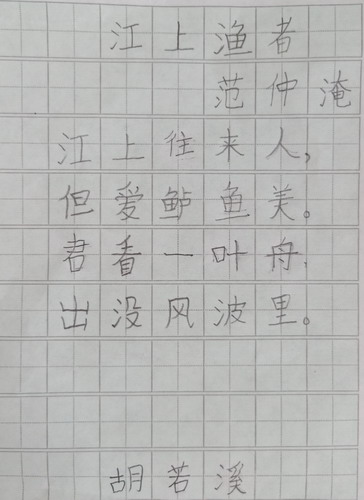 江上渔者
范仲淹
江上往来人,
但爱鲈鱼美。
君看一叶舟,
出没风波里。
胡若溪